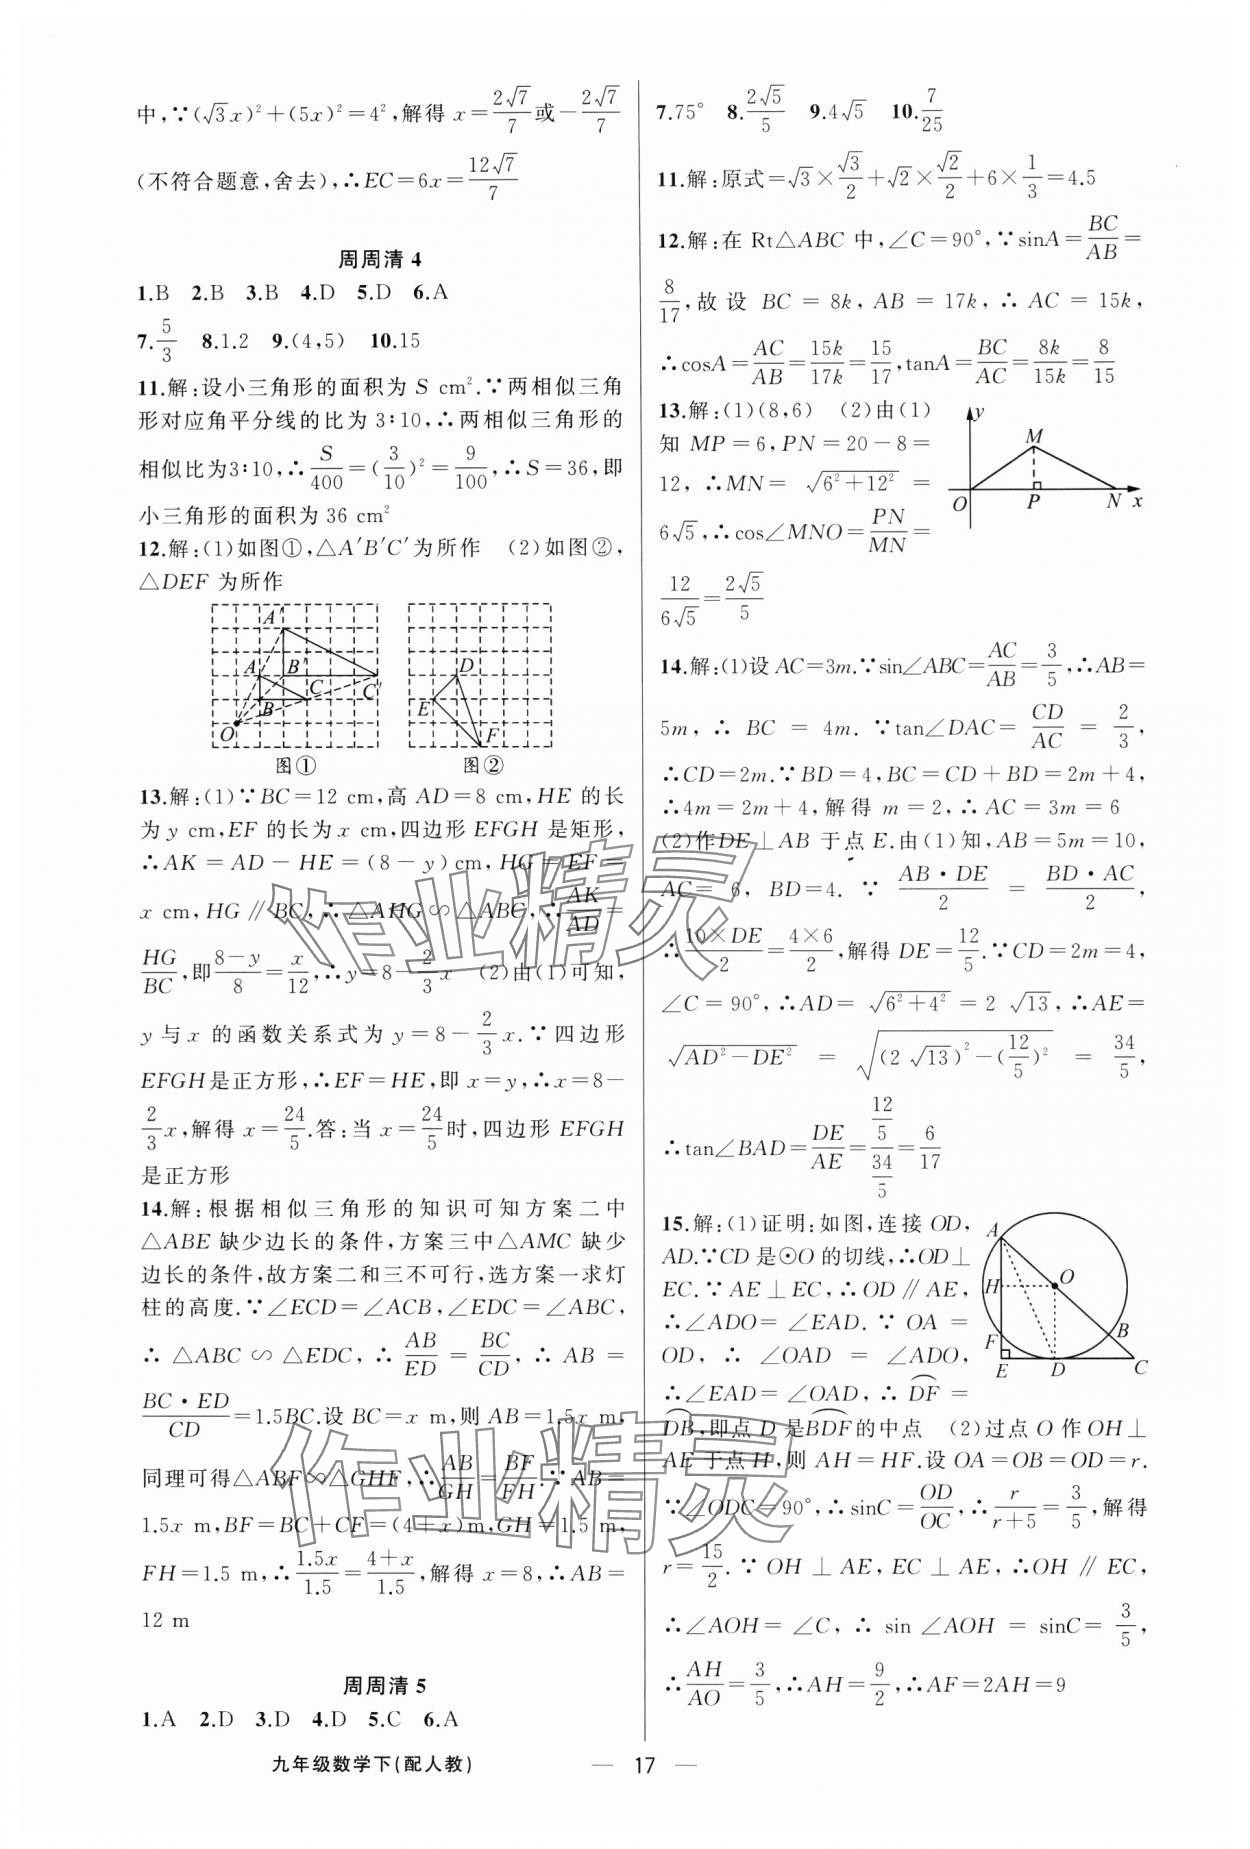 中,∵(√3x)²+(5x)²=4²,解得 x=2√7/7或-2√7/7
(不符合题意,舍去),∴EC=6x=12√7/7
周周清 4
1.B 2.B 3.B 4.D 5.D 6.A
7.5/3 8.1.2 9.(4,5) 10.15
11.解:设小三角形的面积为 S cm².∵两相似三角
形对应角平分线的比为 3∶10,∴两相似三角形的
相似比为3∶10,∴S/400=(3/10)²=9/100,∴S=36,即
小三角形的面积为 36 cm²
12.解:(1)如图①,△A′B′C′为所作 (2)如图②,
△DEF 为所作
A′ A B′ C C′ B O
D E F
图① 图②
13.解:(1)∵BC=12 cm,高 AD=8 cm,HE 的长
为 y cm,EF 的长为 x cm,四边形 EFGH 是矩形,
∴AK=AD-HE=(8-y)cm,HG=EF=
x cm,HG∥BC,∴△AHG∽△ABC,∴AK/AD=
HG/BC,即(8-y)/8=x/12,∴y=8-2/3x (2)由(1)可知,
y 与 x 的函数关系式为 y=8-2/3x.∵四边形
EFGH是正方形,∴EF=HE,即 x=y,∴x=8-
2/3x,解得 x=24/5.答:当 x=24/5时,四边形 EFGH
是正方形
14.解:根据相似三角形的知识可知方案二中
△ABE 缺少边长的条件,方案三中△AMC 缺少
边长的条件,故方案二和三不可行,选方案一求灯
柱的高度.∵∠ECD=∠ACB,∠EDC=∠ABC,
∴△ABC∽△EDC,∴AB/ED=BC/CD,∴AB=
BC·ED/CD=1.5BC.设 BC=x m,则 AB=1.5x m,
同理可得△ABF∽△GHF,∴AB/GH=BF/FH.∵AB=
1.5x m,BF=BC+CF=(4+x)m,GH=1.5 m,
FH=1.5 m,∴1.5x/1.5=(4+x)/1.5,解得 x=8,∴AB=
12 m
周周清 5
1.A 2.D 3.D 4.D 5.C 6.A
7.75° 8.2√5/5 9.4√5 10.7/25
11.解:原式=√3×√3/2+√2×√2/2+6×1/3=4.5
12.解:在 Rt△ABC 中,∠C=90°,∵sinA=BC/AB=
8/17,故设 BC=8k,AB=17k,∴AC=15k,
∴cosA=AC/AB=15k/17k=15/17,tanA=BC/AC=8k/15k=8/15
13.解:(1)(8,6) (2)由(1)
知 MP=6,PN=20-8=
12,∴MN=√(6²+12²)=
6√5,∴cos∠MNO=PN/MN=
12/6√5=2√5/5
y M O P N x
14.解:(1)设 AC=3m.∵sin∠ABC=AC/AB=3/5,∴AB=
5m,∴BC=4m.∵tan∠DAC=CD/AC=2/3,
∴CD=2m.∵BD=4,BC=CD+BD=2m+4,
∴4m=2m+4,解得 m=2,∴AC=3m=6
(2)作DE⊥AB 于点 E.由(1)知,AB=5m=10,
AC=6,BD=4.∵AB·DE/2=BD·AC/2,
∴10×DE/2=4×6/2,解得 DE=12/5.∵CD=2m=4,
∠C=90°,∴AD=√(6²+4²)=2√13,∴AE=
√(AD²-DE²)=√((2√13)²-(12/5)²)=34/5,
∴tan∠BAD=DE/AE=(12/5)/(34/5)=6/17
15.解:(1)证明:如图,连接 OD,
AD.∵CD 是⊙O 的切线,∴OD⊥
EC.∵AE⊥EC,∴OD∥AE,
∴∠ADO=∠EAD.∵OA=
OD,∴∠OAD=∠ADO,
∴∠EAD=∠OAD,∴⌒DF=
⌒DB,即点 D 是⌒BDF的中点 (2)过点 O 作 OH⊥
AE 于点 H,则 AH=HF.设 OA=OB=OD=r.
∵∠ODC=90°,∴sinC=OD/OC,∴r/(r+5)=3/5,解得
r=15/2.∵OH⊥AE,EC⊥AE,∴OH∥EC,
∴∠AOH=∠C,∴sin∠AOH=sinC=3/5,
∴AH/AO=3/5,∴AH=9/2,∴AF=2AH=9
A H O F B E D C
九年级数学下(配人教) — 17 —
作业精灵
作业精灵